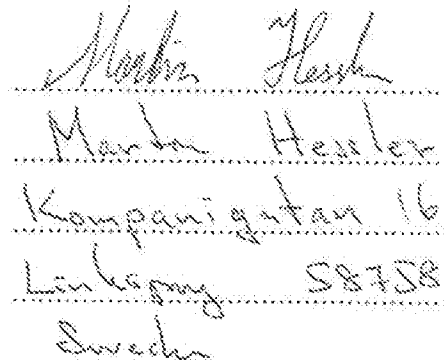 Martin Hessler
Martin Hessler
Kompanigatan 16
Linköping 58758
Sweden